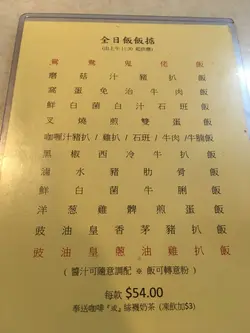 全日飯飯搞
鴛鴦鬼佬飯
磨菇汁豬扒飯
窩蛋免治牛肉飯
鮮白菌白汁石班飯
叉燒煎雙蛋飯
咖喱汁豬扒/雞扒/石班/牛肉/牛腩飯
黑椒西冷牛扒飯
滷水豬肋骨飯
鮮白菌牛脷飯
洋葱雞髀煎蛋飯
豉油皇香茅豬扒飯
豉油皇蔥油雞扒飯
(醬汁可隨意調配 ※ 飯可轉意粉)
每款 $54.00
奉送咖啡『或』絲襪奶茶(凍飲加$3)